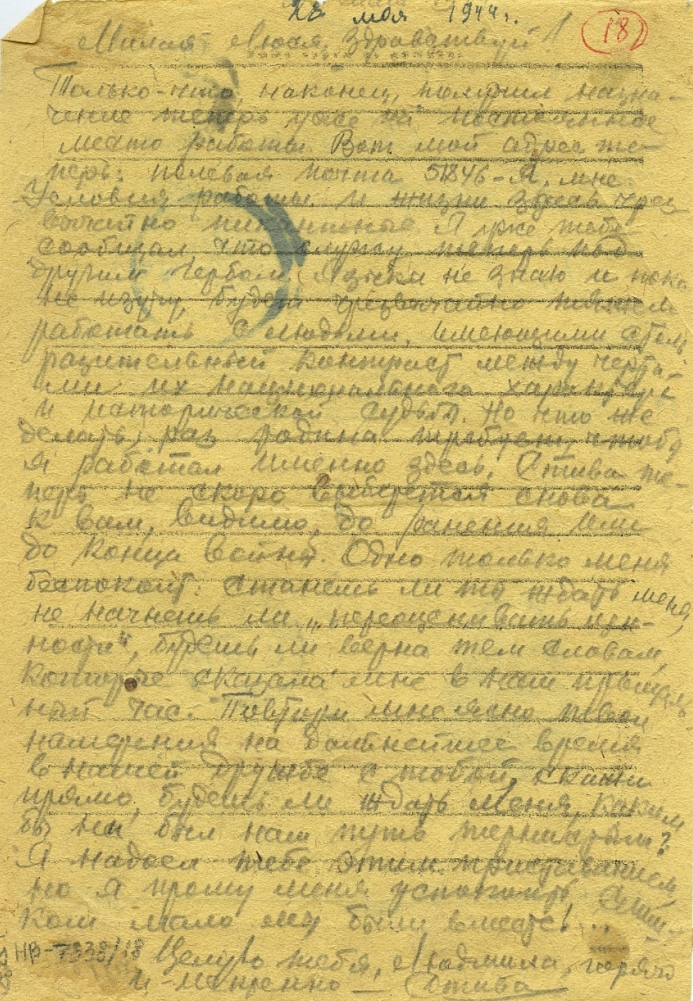 28 мая 1944 г.
18
Милая Люся, здравствуй!
Только-что, наконец, получил назна-
чение теперь уже на постоянное
место работы. Вот мой адрес те-
перь: полевая почта 51846-Я, мне.
Условия работы и жизни здесь чрез
вычайно пикантные. Я уже тебе
сообщал, что служу теперь под
другим гербом. Языка не знаю и пока
не изучу, будет чрезвычайно тяжело
работать с людьми, имеющими столь
разительный контраст между черта-
ми их национального характера
и исторической судьбы. Но что же
делать, раз родина требует, чтобы
я работал именно здесь. Стива те-
перь не скоро выберется снова
к вам, видимо, до ранения или
до конца войны. Одно только меня
беспокоит: станешь ли ты ждать меня,
не начнешь ли „переоценивать цен-
ности", будешь ли верна тем словам,
которые сказала мне в наш прощаль-
ный час. Повтори мне ясно твои
намерения на дальнейшее время
в нашей дружбе с тобой, скажи
прямо, будешь ли ждать меня, каким
бы ни был наш путь тернистым?
Я надоел тебе этим приставанием,
но я прошу меня успокоить. Слиш-
ком мало мы были вместе!...
НВ-7338/18 Целую тебя, Людмила, горячо
и искренно — Стива